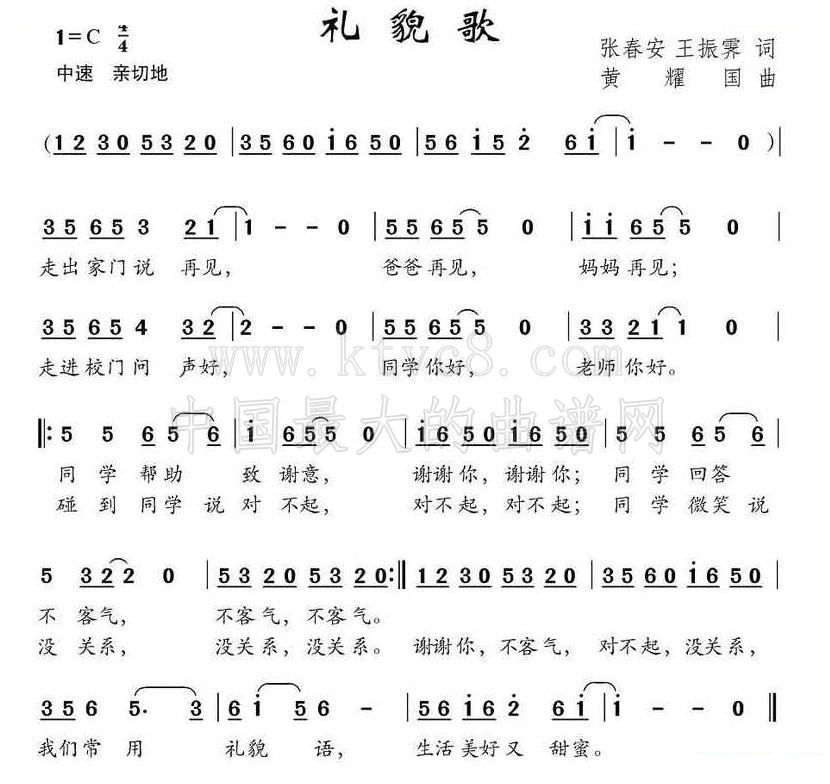 礼貌歌
1=C 4/4
中速 亲切地
张春安 王振霁 词
黄耀国 曲
(1 2 3 0 5 3 2 0 | 3 5 6 0 i 6 5 0 | 5 6 i 5 2 6 i | i - - 0 )|
3 5 6 5 3 2 1 | 1 - - 0 | 5 5 6 5 5 0 | i i 6 5 5 0 |
走出家门说 再见， 爸爸再见， 妈妈再见；
3 5 6 5 4 3 2 | 2 - - 0 | 5 5 6 5 5 0 | 3 3 2 1 1 0 |
走进校门问 声好， 同学你好， 老师你好。
www.ktvc8.com
中国最大的曲谱网
‖: 5 5 6 5 6 | i 6 5 5 0 | i 6 5 0 i 6 5 0 | 5 5 6 5 6 |
同学帮助 致谢意， 谢谢你，谢谢你； 同学回答
碰到同学说对不起， 对不起，对不起； 同学微笑说
5 3 2 2 0 | 5 3 2 0 5 3 2 0 :‖ 1 2 3 0 5 3 2 0 | 3 5 6 0 i 6 5 0 |
不客气， 不客气，不客气。
没关系， 没关系，没关系。 谢谢你，不客气， 对不起，没关系，
3 5 6 5. 3 | 6 i 5 6 - | 5 6 i 6 2 6 i | i - - 0 ‖
我们常用 礼貌 语， 生活美好又 甜蜜。